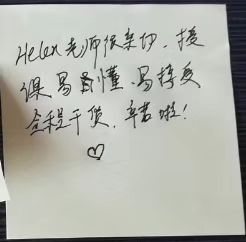 Helen老师很亲切，授
课易懂、易接受
全程干货，辛苦啦！
♡